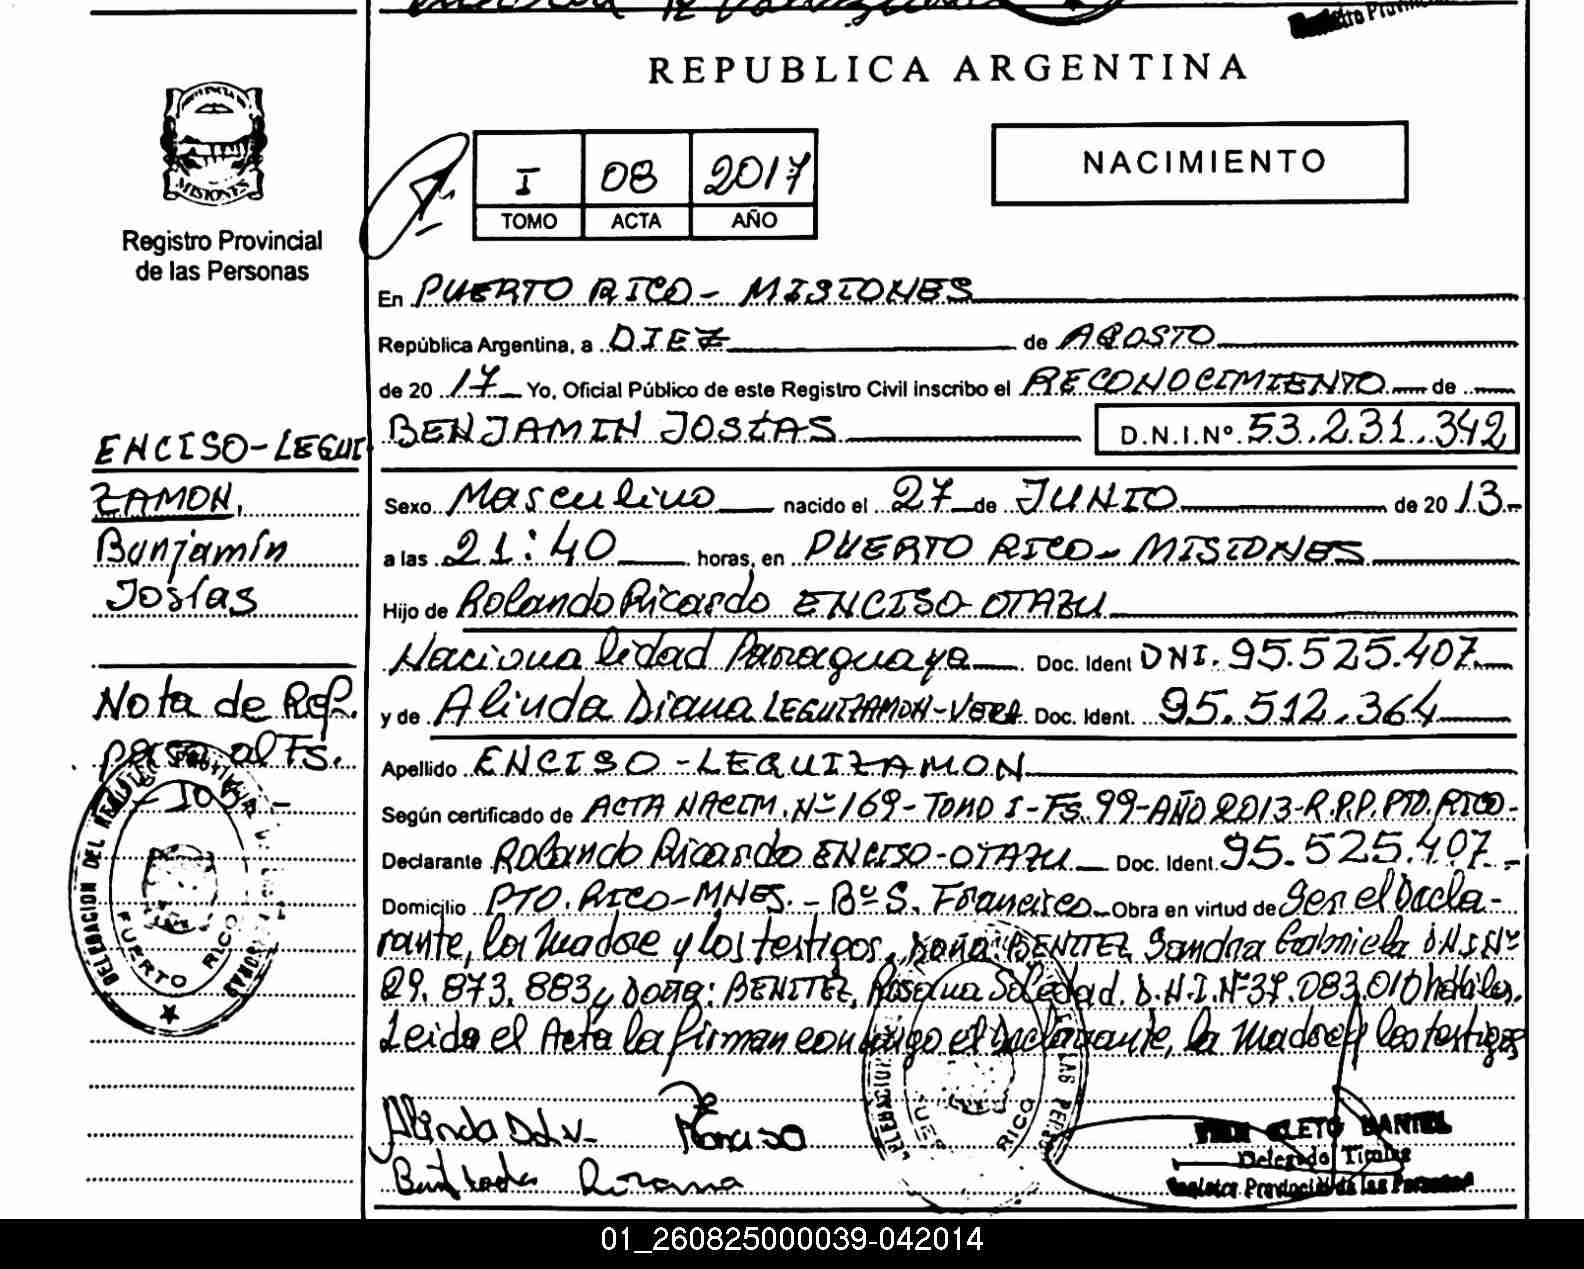 REPUBLICA ARGENTINA
PROVINCIA DE
MISIONES
Registro Provincial
de las Personas
I 08 2017
TOMO ACTA AÑO
NACIMIENTO
En PUERTO RICO - MISIONES
República Argentina, a DIEZ de AGOSTO
de 20 17 Yo, Oficial Público de este Registro Civil inscribo el RECONOCIMIENTO de
BENJAMIN JOSIAS D.N.I.Nº 53.231.342
ENCISO-LEGUI
ZAMON,
Benjamín
Josías
Sexo Masculino nacido el 27 de JUNIO de 20 13.-
a las 21:40 horas, en PUERTO RICO - MISIONES
Hijo de Rolando Ricardo ENCISO-OTAZU
Nacionalidad Paraguaya Doc. Ident DNI. 95.525.407.
y de Alinda Diana LEGUIZAMON-VERA Doc. Ident. 95.512.364
Nota de Ref.
pasa al Fs.
Apellido ENCISO - LEGUIZAMON
Según certificado de ACTA NACIM. Nº 169 - TOMO I - Fs. 99 - AÑO 2013 - R.P.P. PTO. RICO -
Declarante Rolando Ricardo ENCISO-OTAZU Doc. Ident. 95.525.407 -
Domicilio PTO. RICO-MNES. - Bº S. Francisco Obra en virtud de Ser el Decla-
rante, la Madre y los testigos, Doña: BENITEZ Sandra Gabriela D.N.I.Nº
29.873.883 y Doña: BENITEZ, Rosana Soledad. D.N.I.Nº 37.083.010 hábiles.
Leida el Acta la firman conmigo el Declarante, la Madre y los testigos
DELEGACION DEL REGISTRO
PUERTO RICO
PUERTO RICO
Alinda D.L.V. Enciso
CLETO DANIEL
Delegado Titular
Registro Provincial de las Personas
01_260825000039-042014